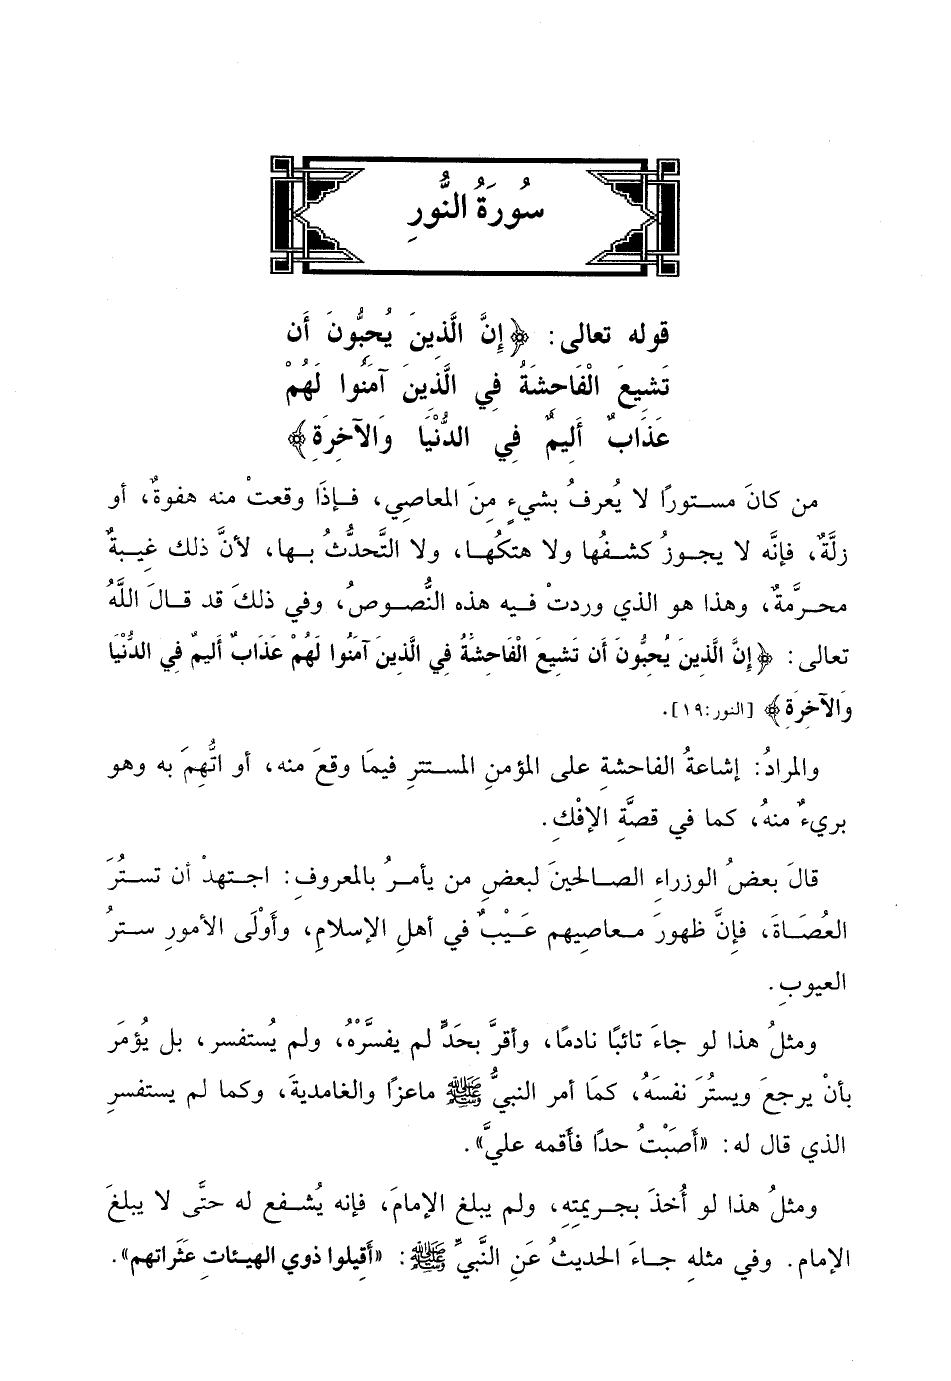 سُورَةُ النُّورِ
قوله تعالى: ﴿إِنَّ الَّذِينَ يُحِبُّونَ أَن
تَشِيعَ الْفَاحِشَةُ فِي الَّذِينَ آمَنُوا لَهُمْ
عَذَابٌ أَلِيمٌ فِي الدُّنْيَا وَالآخِرَةِ﴾
من كانَ مستورًا لا يُعرفُ بشيءٍ مِنَ المعاصِي، فإذَا وقعتْ منه هفوةٌ، أو
زلَّةٌ، فإنَّه لا يجوزُ كشفُها ولا هتكُها، ولا التَّحدثُ بها، لأنَّ ذلك غِيبةٌ
محرَّمةٌ، وهذا هو الذي وردتْ فيه هذه النُّصوصُ، وفي ذلكَ قد قالَ اللَّهُ
تعالى: ﴿إِنَّ الَّذِينَ يُحِبُّونَ أَن تَشِيعَ الْفَاحِشَةُ فِي الَّذِينَ آمَنُوا لَهُمْ عَذَابٌ أَلِيمٌ فِي الدُّنْيَا
وَالآخِرَةِ﴾ [النور:١٩].
والمرادُ: إشاعةُ الفاحشةِ على المؤمنِ المستترِ فيمَا وقعَ منه، أو اتُّهِمَ به وهو
بريءٌ منهُ، كما في قصَّةِ الإفْكِ.
قالَ بعضُ الوزراءِ الصالحينَ لبعضِ من يأمرُ بالمعروفِ: اجتهدْ أن تسترُ
العُصَاةَ، فإنَّ ظهورَ معاصِيهم عَيْبٌ في أهلِ الإسلامِ، وأَوْلَى الأمورِ سترُ
العيوبِ.
ومثلُ هذا لو جاءَ تائبًا نادمًا، وأقرَّ بحَدٍّ لم يفسَّرْهُ، ولم يُستفسر، بل يُؤمَر
بأنْ يرجعَ ويسترُ نفسَهُ، كمَا أمر النبيُّ ﷺ ماعزًا والغامديةَ، وكما لم يستفسرِ
الذي قال له: «أَصَبْتُ حدًا فأقمه عليَّ».
ومثلُ هذا لو أُخذَ بجريمتِهِ، ولم يبلغ الإمامَ، فإنه يُشفع له حتَّى لا يبلغَ
الإمام. وفي مثلهِ جاءَ الحديثُ عَنِ النَّبيِّ ﷺ: «أَقِيلوا ذوي الهيئاتِ عَثَراتهم».